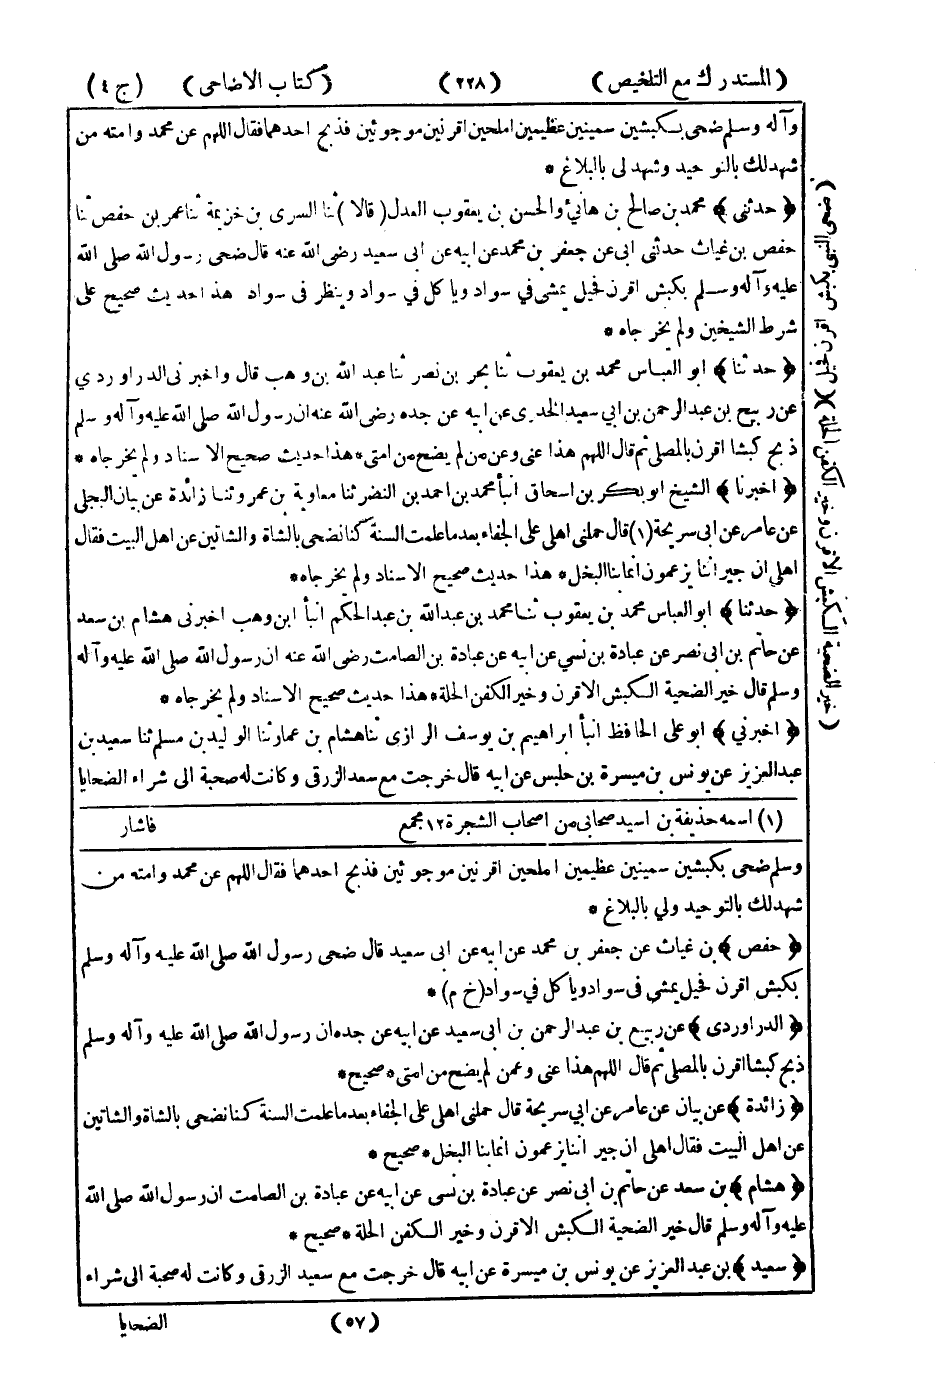 ( المستدرك مع التلخيص ) ( ٢٢٨ ) ( كتاب الاضاحى ) ( ج ٤ )
وآله وسلم ضحى بكبشين سمينين عظيمين املحين اقرنين موجوئين فذبح احدهما فقال اللهم عن محمد وامته من
شهد لك بالتوحيد وشهد لى بالبلاغ *
﴿ حدثنى ﴾ محمد بن صالح بن هانئ والحسن بن يعقوب العدل ( قالا ) ثنا السرى بن خزيمة ثنا عمر بن حفص ثنا
حفص بن غياث حدثنى ابى عن جعفر بن محمد عن ابيه عن ابى سعيد رضى الله عنه قال ضحى رسول الله صلى الله
عليه وآله وسلم بكبش اقرن فحيل يمشى في سواد ويا كل في سواد وينظر فى سواد هذا حديث صحيح على
شرط الشيخين ولم يخرجاه *
﴿ حدثنا ﴾ ابو العباس محمد بن يعقوب ثنا بحر بن نصر ثنا عبد الله بن وهب قال واخبرنى الدراوردي
عن ربيح بن عبد الرحمن بن ابي سعيد الخدرى عن ابيه عن جده رضى الله عنه ان رسول الله صلى الله عليه وآله وسلم
ذبح كبشا اقرن بالمصلى ثم قال اللهم هذا عنى وعن من لم يضح من امتى * هذا حديث صحيح الاسناد ولم يخرجاه *
﴿ اخبرنا ﴾ الشيخ ابو بكر بن اسحاق انبأ محمد بن احمد بن النضر ثنا معاوية بن عمرو ثنا زائدة عن بيان البجلى
عن عامر عن ابى سريحة (١) قال حملنى اهلى على الجفاء بعد ما علمت السنة كنا نضحى بالشاة والشاتين عن اهل البيت فقال
اهلى ان جيراننا يزعمون انما بنا البخل * هذا حديث صحيح الاسناد ولم يخرجاه *
﴿ حدثنا ﴾ ابو العباس محمد بن يعقوب ثنا محمد بن عبد الله بن عبد الحكم انبأ ابن وهب اخبرنى هشام بن سعد
عن حاتم بن ابى نصر عن عبادة بن نسي عن ابيه عن عبادة بن الصامت رضى الله عنه ان رسول الله صلى الله عليه وآله
وسلم قال خير الضحية الكبش الاقرن وخير الكفن الحلة * هذا حديث صحيح الاسناد ولم يخرجاه *
﴿ اخبرني ﴾ ابو على الحافظ انبأ ابراهيم بن يوسف الرازى ثنا هشام بن عمار ثنا الوليد بن مسلم ثنا سعيد بن
عبد العزيز عن يونس بن ميسرة بن حلبس عن ابيه قال خرجت مع سعد الزرقى وكانت له صحبة الى شراء الضحايا
(١) اسمه حذيفة بن اسيد صحابى من اصحاب الشجرة ١٢ مجمع فاشار
وسلم ضحى بكبشين سمينين عظيمين املحين اقرنين موجوئين فذبح احدهما فقال اللهم عن محمد وامته من
شهد لك بالتوحيد ولي بالبلاغ *
﴿ حفص ﴾ بن غياث عن جعفر بن محمد عن ابيه عن ابى سعيد قال ضحى رسول الله صلى الله عليه وآله وسلم
بكبش اقرن فحيل يمشى فى سواد ويأكل في سواد ( خ م ) *
﴿ الدراوردى ﴾ عن ربيح بن عبد الرحمن بن ابى سعيد عن ابيه عن جده ان رسول الله صلى الله عليه وآله وسلم
ذبح كبشا اقرن بالمصلى ثم قال اللهم هذا عنى وعمن لم يضح من امتى * صحيح *
﴿ زائدة ﴾ عن بيان عن عامر عن ابي سريحة قال حملنى اهلى على الجفاء بعد ما علمت السنة كنا نضحى بالشاة والشاتين
عن اهل البيت فقال اهلى ان جيراننا يزعمون انما بنا البخل * صحيح *
﴿ هشام ﴾ بن سعد عن حاتم بن ابى نصر عن عبادة بن نسى عن ابيه عن عبادة بن الصامت ان رسول الله صلى الله
عليه وآله وسلم قال خير الضحية الكبش الاقرن وخير الكفن الحلة * صحيح *
﴿ سعيد ﴾ بن عبد العزيز عن يونس بن ميسرة عن ابيه قال خرجت مع سعيد الزرقى وكانت له صحبة الى شراء
( ٥٧ ) الضحايا
( خير الضحية الكبش الاقرن وخير الكفن الحلة )